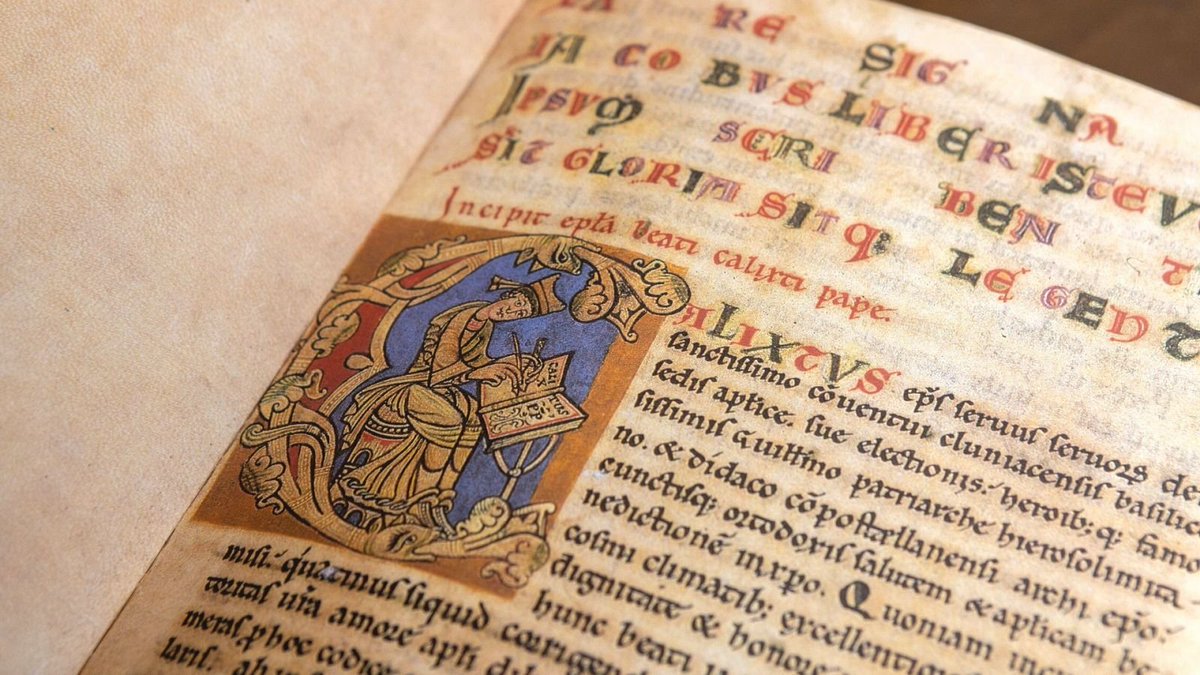 RE SIG NA
IACOBUS LIBER ISTE V
IPSUM SCRI BEN T
SIT GLORIA SITQ LE GEN T
Incipit epła beati calixti pape.
ALIXTUS epſ ſeruuſ ſeruorꝝ de
ſanctiſſimo cōuentui cluniacenſiſ baſilic
ſediſ aplice. ſue electioniſ. heroib; q; famo
ſiſſimiſ Guillmo patriarche hieroſolimita
no. & didaco cōpoſtellanenſi archi epō.
cunctiſq; ortodoxiſ ſalutem & aplicam be
nedictionē in xpo. Quoniam in
coſmi climatib; excellentio
dignitate & honore
hunc beati
miſi. quatinuſ ſiquid corrigen
toritaſ ura amore apli dil
meriſ. p hoc codice
lariſ.